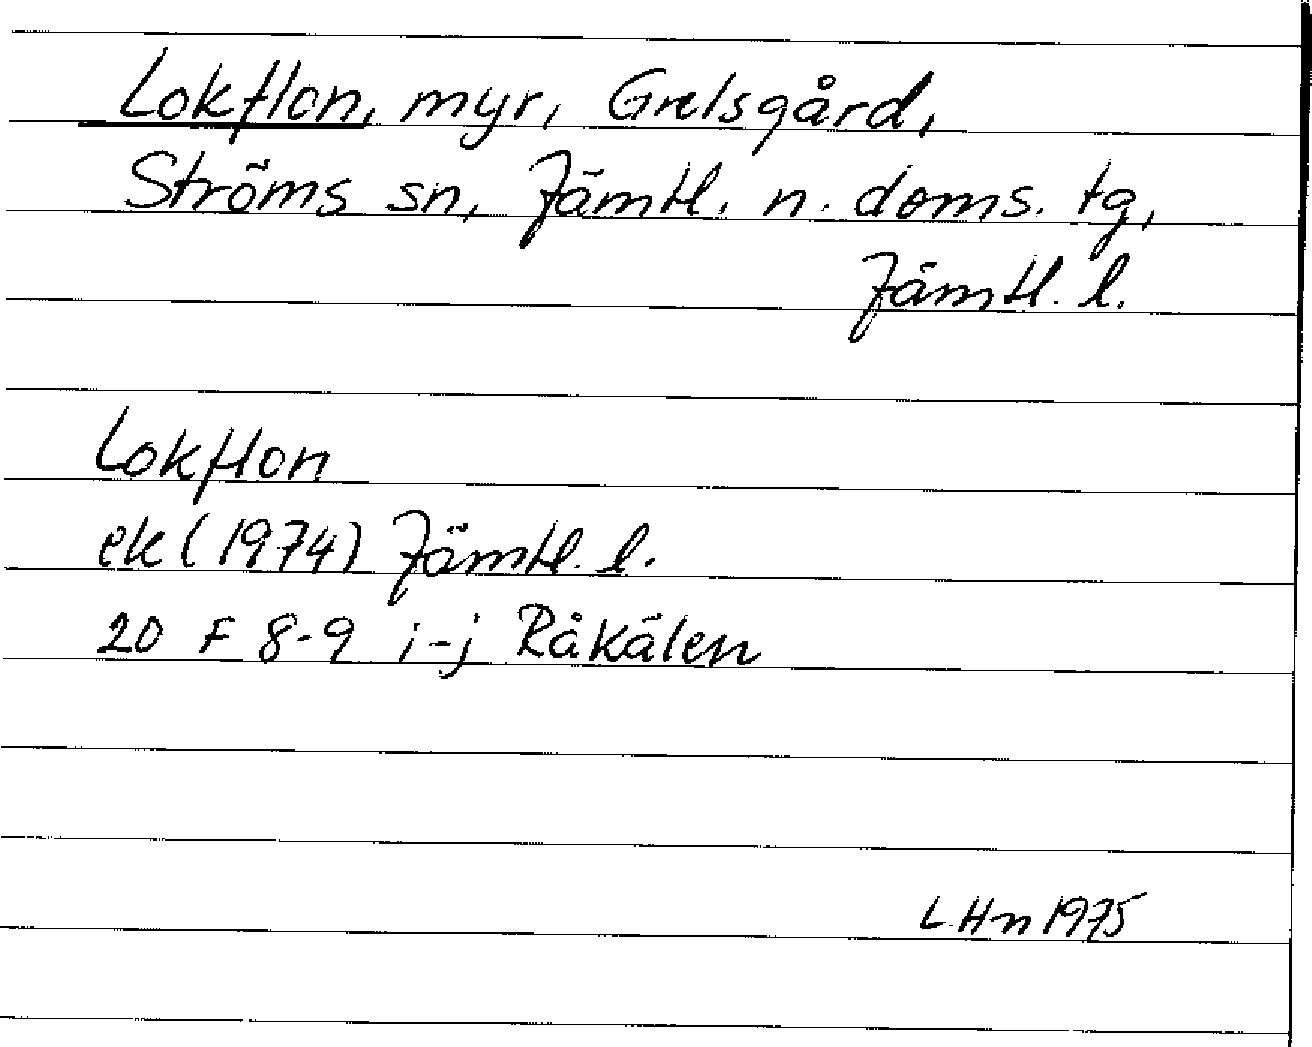 Lokflon, myr, Grelsgård,
Ströms sn, Jämtl. n. doms. tg,
Jämtl. l.
Lokflon
ek (1974) Jämtl. l.
20 F 8-9 i-j Råkälen
L Hn 1975